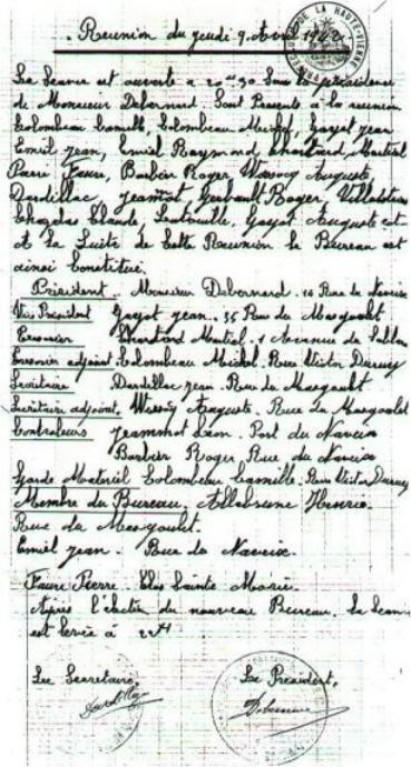 Reunion du jeudi 9 Avril 1942
La Séance est ouverte à 20H30 Sous la présidence
de Monsieur Debernard. Sont Presents à la reunion
Colombeau Camille, Colombeau Michel, Goyot Jean
Emil Jean, Emiel Raymond, Chartard Martial
Pierre Faure, Barbier Roger, Auguste,
Dardillac, Jeammot, Gerbault Roger,
Claude, Goyot Auguste ect-
A la Suite de Cette Reunion le Bureau est
ainsi Constitué.
Président. Monsieur Debernard. Rue du Naveix
Vice President Goyot Jean. 35 Rue du Masgoulet
Chartard Martial. 1 Avenue du Sablon
adjoint. Colombeau Michel. Rue Victor Duruy
Secrétaire Dardillac Jean. Rue du Masgoulet
Secrétaire adjoint. Auguste. Rue du Masgoulet
Controleurs Jeammot Leon. Port du Naveix
Barbier Roger Rue du Naveix
Garde Materiel Colombeau Camille. Rue Victor Duruy
Membre du Bureau. Henrie.
Rue du Masgoulet.
Emiel Jean. Rue du Naveix.
Faure Pierre. Clos Sainte Marie.
Après l'élection du nouveau Bureau. La Séance
est levée à 22H
Le Secretaire, Le President,
Dardillac